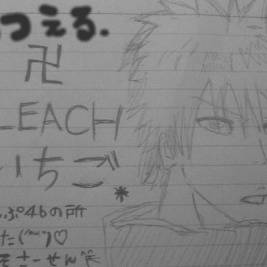 つえる.
卍
LEACH
いちご*
ぷ4bの所
た(^~^)♡
さーせん